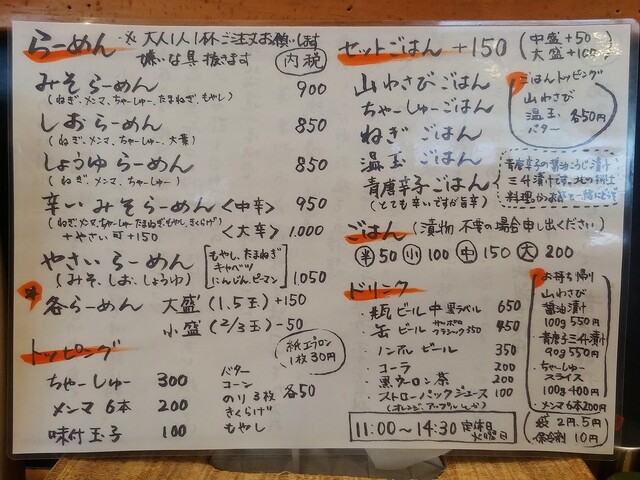 らーめん ※大人1人1杯ご注文お願いします
嫌いな具抜きます 内税
みそらーめん 900
(ねぎ、メンマ、ちゃーしゅー、たまねぎ、もやし)
しおらーめん 850
(ねぎ、メンマ、ちゃーしゅー、大葉)
しょうゆらーめん 850
(ねぎ、メンマ、ちゃーしゅー)
辛いみそらーめん <中辛> 950
(ねぎ、メンマ、ちゃーしゅー、たまねぎ、もやし、きくらげ) <大辛> 1,000
+やさい可+150
やさいらーめん
(みそ、しお、しょうゆ)
もやし、たまねぎ
キャベツ
にんじん、ピーマン
1,050
※各らーめん 大盛(1.5玉)+150
小盛(2/3玉)-50
トッピング
紙エプロン
1枚30円
ちゃーしゅー 300
メンマ6本 200
味付玉子 100
バター
コーン
のり3枚
きくらげ
もやし
各50
セットごはん +150
(中盛+50
大盛+100)
山わさびごはん
ちゃーしゅーごはん
ねぎごはん
温玉ごはん
青唐辛子ごはん
(とても辛いですが旨辛)
ごはんトッピング
山わさび
温玉
バター
各50円
青唐辛子の醤油こうじ漬け
三升漬けです。北の郷土
料理
ごはん (漬物 不要の場合申し出ください)
半50 小100 中150 大200
ドリンク
・瓶ビール中 黒ラベル 650
・缶ビール サッポロクラシック350 450
・ノンアルビール 350
・コーラ 200
・黒ウーロン茶 200
・ストローパックジュース 100
(オレンジ、アップル)
お持ち帰り
山わさび
醤油漬け
100g 550円
青唐子三升漬け
90g 550円
ちゃーしゅー
スライス
100g 400円
メンマ6本200円
袋 2円、5円
保冷剤 10円
11:00～14:30 定休日
火曜日